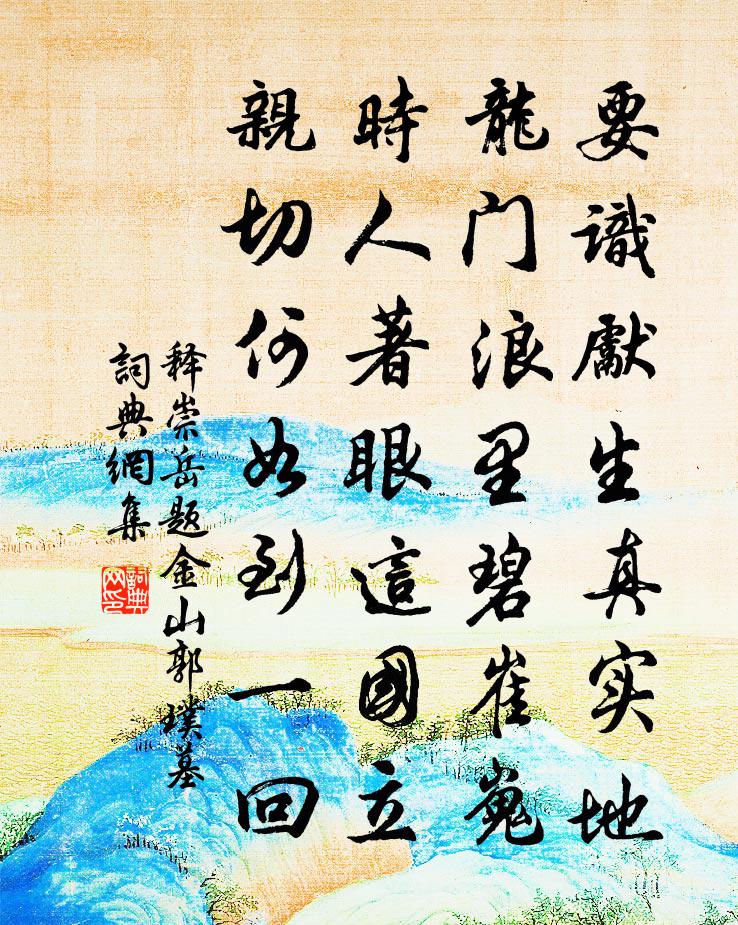 要識獻生真实地
龍门浪里碧崔嵬
時人著眼這國立
親切何如到一回
释崇岳题金山郭璞墓
詞典網集
詞典网印